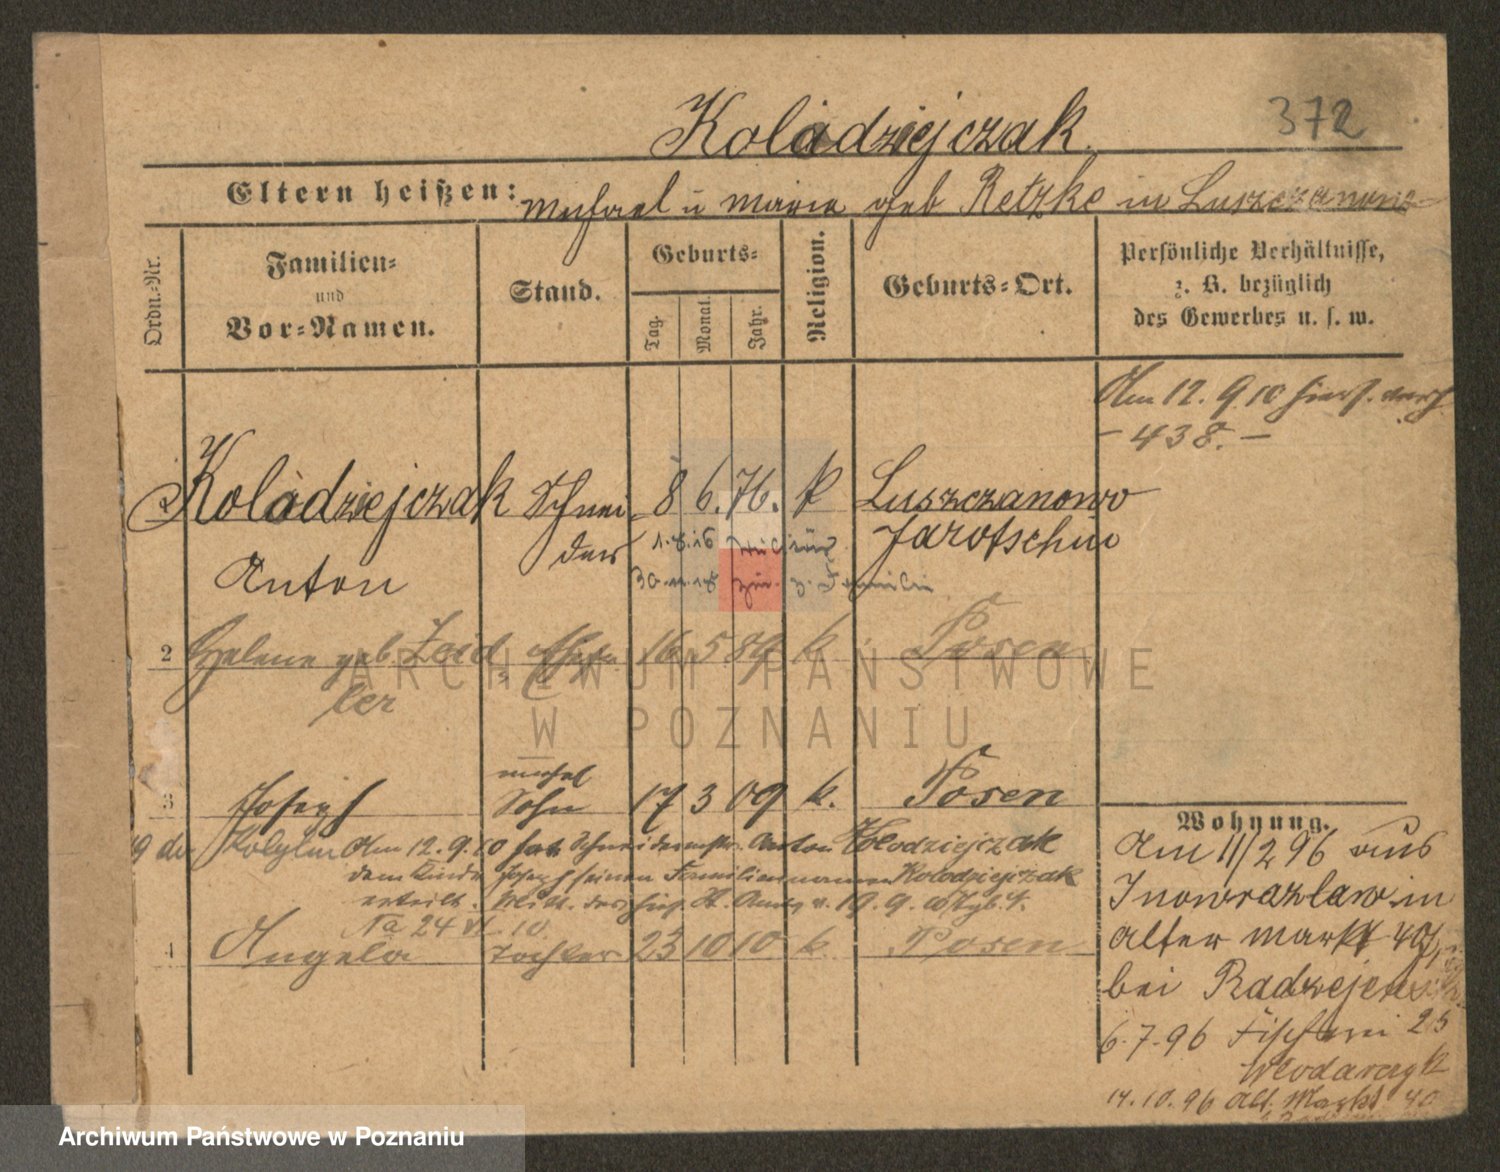 372
Koladziejczak.
Eltern heißen: Michael u Maria geb Retzke in Luszczanowo
Ordn.-Nr.
Familien-
und
Vor-Namen.
Stand.
Geburts-
Tag.
Monat.
Jahr.
Religion.
Geburts-Ort.
Persönliche Verhältnisse,
z. B. bezüglich
des Gewerbes u. s. w.
Am 12. 9. 10
- 438. -
Koladziejczak Schnei- 8 6. 76. k Luszczanowo
der Jarotschin
1.8.16
Anton
30.11.18 z. Familie
2 Helene geb Zeid- 16 5 89 k Posen
ler
unehel
3 Joseph Sohn 17 3 09 k. Posen
Am 12. 9. 10 hat Schneidermstr. Anton Kolodziejczak
dem Kinde Joseph seinen Familiennamen Kolodziejczak
erteilt.
Na 24 10.
4 Angela Tochter 23 10 10. k. Posen
Wohnung.
Am 11/2 96 aus
Inowrazlaw in
Alter Markt 40
bei
6.7.96 Fischerei 25
Wlodarczyk
14.10.96 Alt. Markt 40
ARCHIWUM PAŃSTWOWE
W POZNANIU
Archiwum Państwowe w Poznaniu